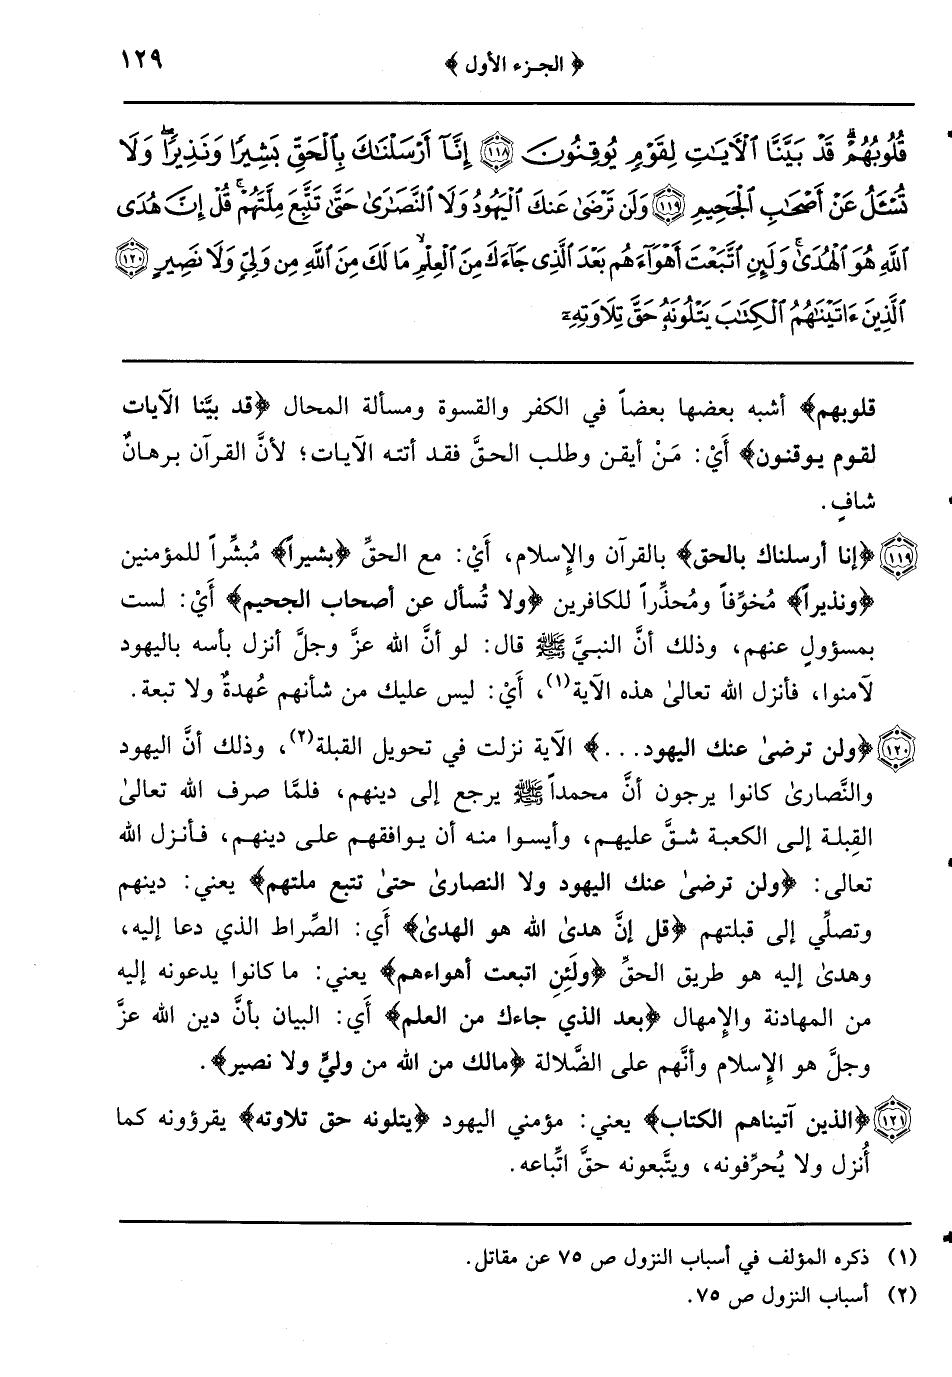 ﴿ الجزء الأول ﴾ ١٢٩
قُلُوبُهُمْ قَدْ بَيَّنَّا ٱلْآيَـٰتِ لِقَوْمٍ يُوقِنُونَ ١١٨ إِنَّآ أَرْسَلْنَـٰكَ بِٱلْحَقِّ بَشِيرًا وَنَذِيرًا ۖ وَلَا
تُسْـَٔلُ عَنْ أَصْحَـٰبِ ٱلْجَحِيمِ ١١٩ وَلَن تَرْضَىٰ عَنكَ ٱلْيَهُودُ وَلَا ٱلنَّصَـٰرَىٰ حَتَّىٰ تَتَّبِعَ مِلَّتَهُمْ ۗ قُلْ إِنَّ هُدَى
ٱللَّهِ هُوَ ٱلْهُدَىٰ ۗ وَلَئِنِ ٱتَّبَعْتَ أَهْوَآءَهُم بَعْدَ ٱلَّذِى جَآءَكَ مِنَ ٱلْعِلْمِ ۙ مَا لَكَ مِنَ ٱللَّهِ مِن وَلِىٍّ وَلَا نَصِيرٍ ١٢٠
ٱلَّذِينَ ءَاتَيْنَـٰهُمُ ٱلْكِتَـٰبَ يَتْلُونَهُۥ حَقَّ تِلَاوَتِهِۦ
قلوبهم﴾ أشبه بعضها بعضاً في الكفر والقسوة ومسألة المحال ﴿قد بيَّنا الآيات
لقوم يوقنون﴾ أَيْ: مَنْ أيقن وطلب الحقَّ فقد أتته الآيات؛ لأنَّ القرآن برهانٌ
شافٍ.
١١٩ ﴿إنا أرسلناك بالحق﴾ بالقرآن والإِسلام، أَيْ: مع الحقِّ ﴿بشيراً﴾ مُبشِّراً للمؤمنين
﴿ونذيراً﴾ مُخوِّفاً ومُحذِّراً للكافرين ﴿ولا تُسأل عن أصحاب الجحيم﴾ أَيْ: لست
بمسؤولٍ عنهم، وذلك أنَّ النبيَّ ﷺ قال: لو أنَّ الله عزَّ وجلَّ أنزل بأسه باليهود
لآمنوا، فأنزل الله تعالىٰ هذه الآية(١)، أَيْ: ليس عليك من شأنهم عُهدةٌ ولا تبعة.
١٢٠ ﴿ولن ترضىٰ عنك اليهود...﴾ الآية نزلت في تحويل القبلة(٢)، وذلك أنَّ اليهود
والنَّصارىٰ كانوا يرجون أنَّ محمداً ﷺ يرجع إلى دينهم، فلمَّا صرف الله تعالىٰ
القِبلة إلى الكعبة شقَّ عليهم، وأيسوا منه أن يوافقهم على دينهم، فأنزل الله
تعالى: ﴿ولن ترضىٰ عنك اليهود ولا النصارىٰ حتىٰ تتبع ملتهم﴾ يعني: دينهم
وتصلِّي إلى قبلتهم ﴿قل إنَّ هدىٰ الله هو الهدىٰ﴾ أَي: الصِّراط الذي دعا إليه،
وهدىٰ إليه هو طريق الحقِّ ﴿ولَئِنِ اتبعت أهواءهم﴾ يعني: ما كانوا يدعونه إليه
من المهادنة والإِمهال ﴿بعد الذي جاءك من العلم﴾ أَي: البيان بأنَّ دين الله عزَّ
وجلَّ هو الإِسلام وأنَّهم على الضَّلالة ﴿مالك من الله من وليٍّ ولا نصير﴾.
١٢١ ﴿الذين آتيناهم الكتاب﴾ يعني: مؤمني اليهود ﴿يتلونه حق تلاوته﴾ يقرؤونه كما
أُنزل ولا يُحرِّفونه، ويتَّبعونه حقَّ اتِّباعه.
(١) ذكره المؤلف في أسباب النزول ص ٧٥ عن مقاتل.
(٢) أسباب النزول ص ٧٥.